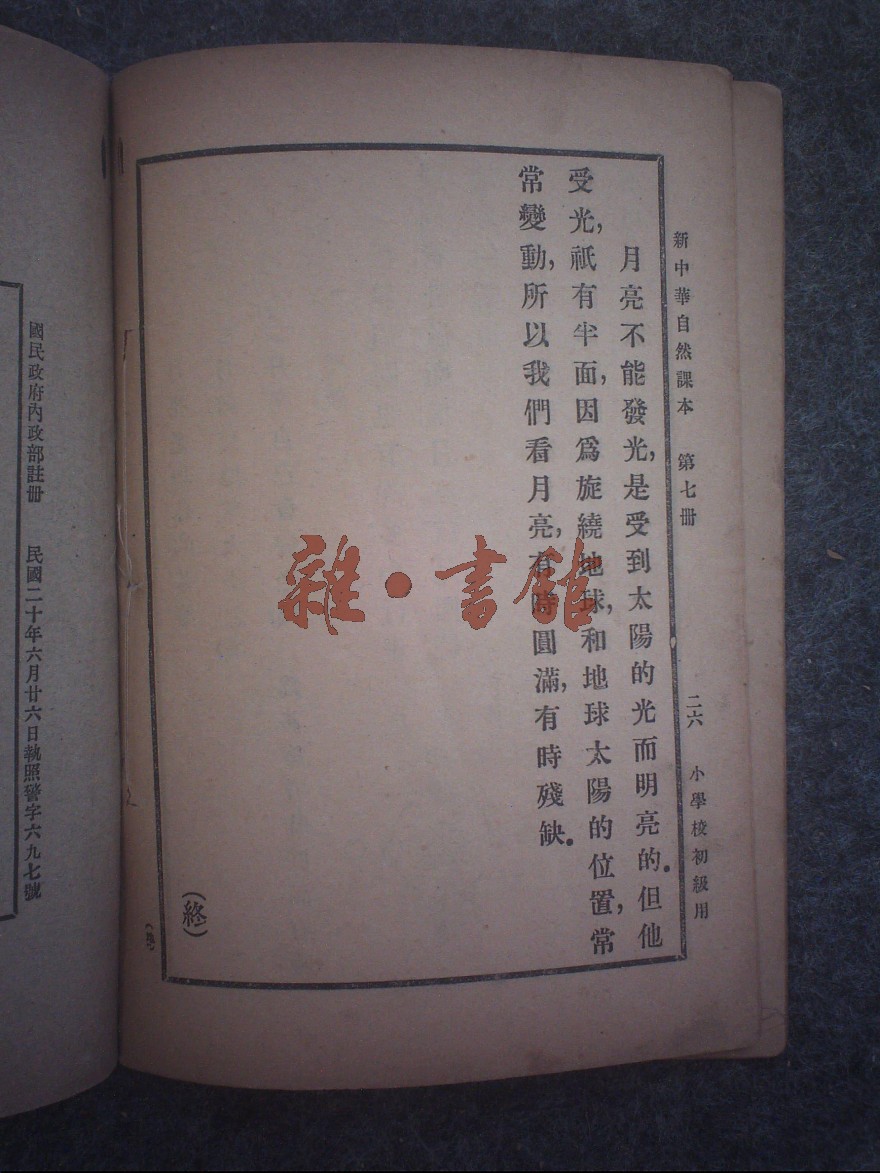 新中華自然課本 第七冊 二六 小學校初級用
月亮不能發光,是受到太陽的光而明亮的。但他
受光,祇有半面,因爲旋繞地球,和地球太陽的位置,常
常變動,所以我們看月亮,有時圓滿,有時殘缺。
(終)
國民政府內政部註冊 民國二十年六月廿六日執照警字六九七號
雜·書館